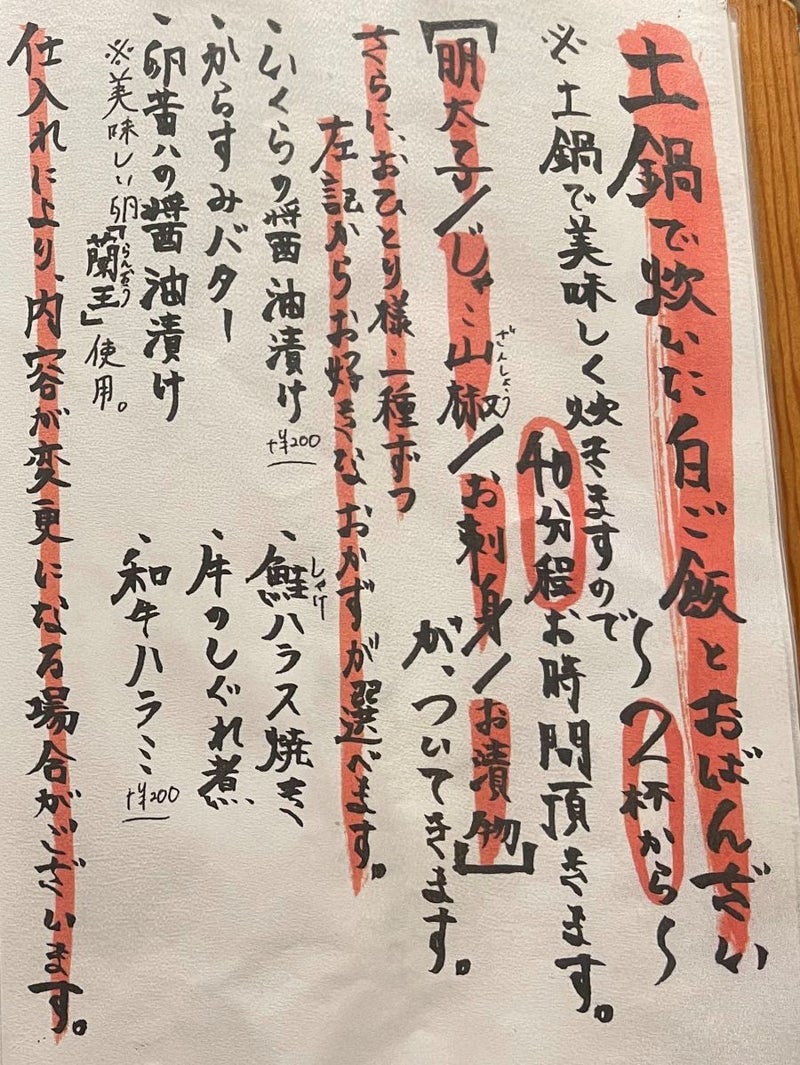 土鍋で炊いた白ご飯とおばんざい
〜2杯から〜
※土鍋で美味しく炊きますので
40分程お時間頂きます。
【明太子/じゃこ山椒/お刺身/お漬物】
ざんしょう
が、ついてきます。
さらに、おひとり様二種ずつ
左記からお好きなおかずが選べます。
・いくらの醤油漬け +¥200
・からすみバター
・卵黄ハの醤油漬け
※美味しい卵「蘭王」使用。
らんおう
・鮭ハラス焼き
しゃけ
・牛のしぐれ煮
・和牛ハラミ +¥200
仕入れにより、内容が変更になる場合がございます。